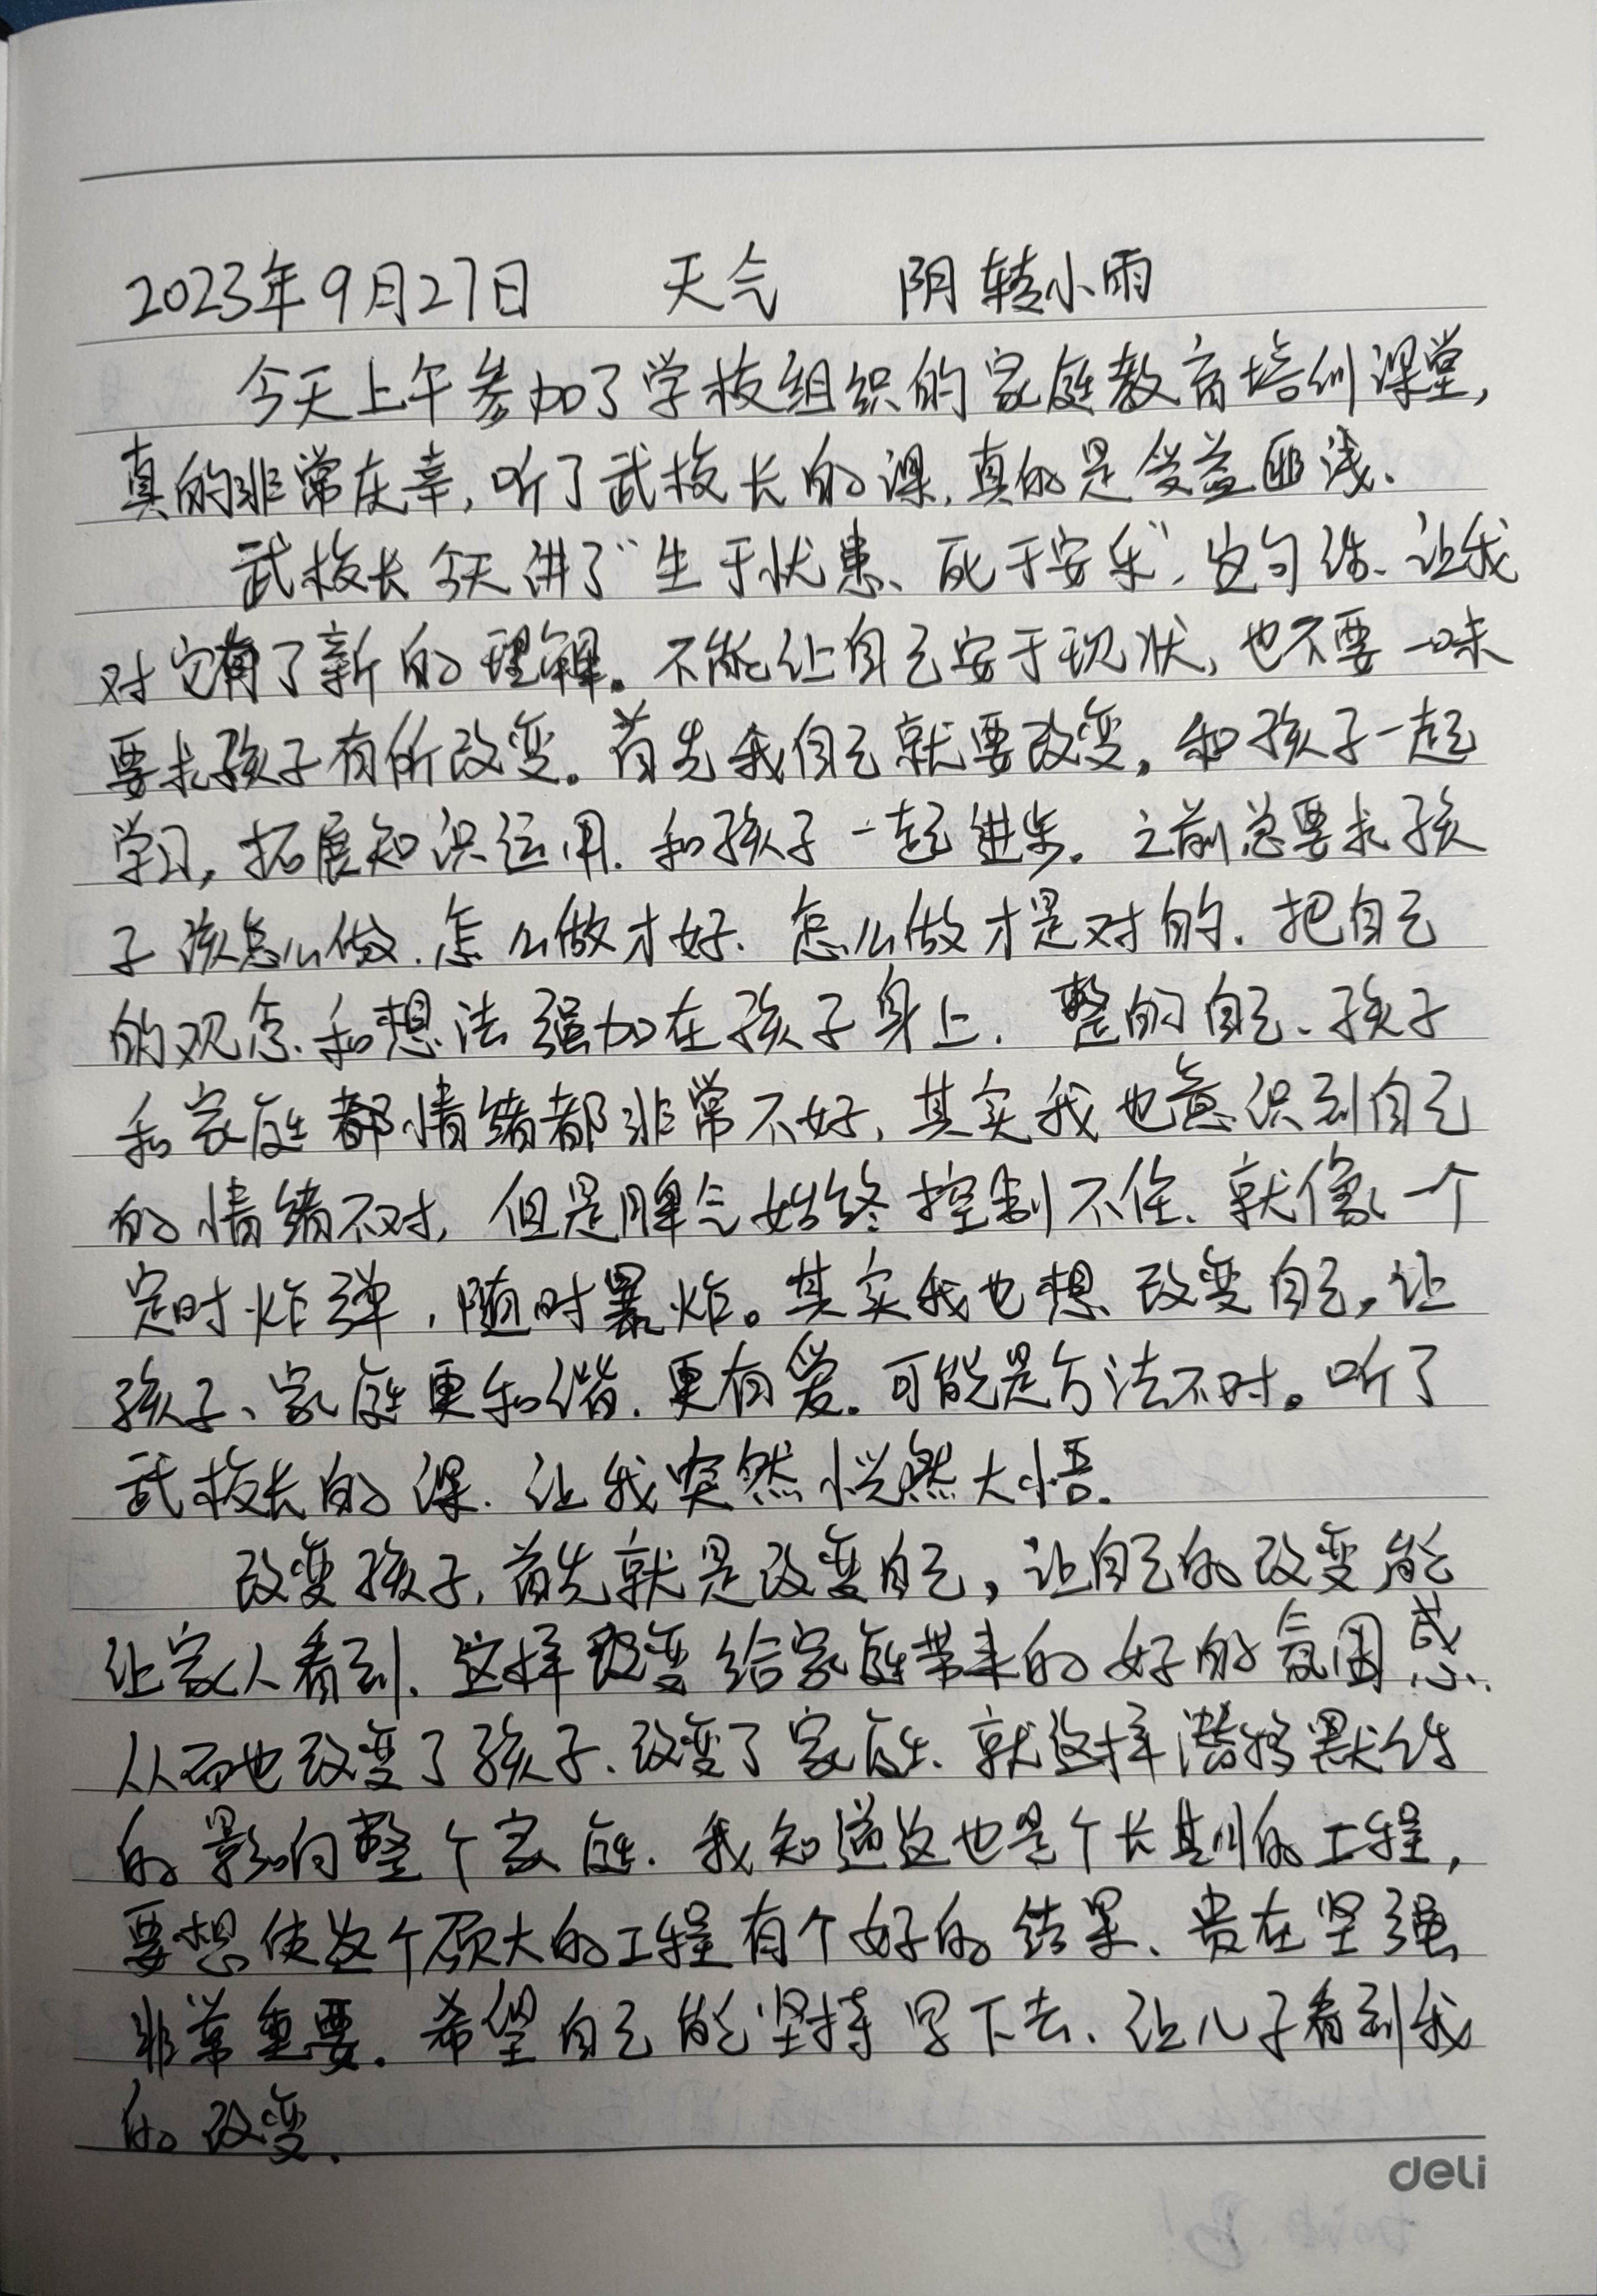 2023年9月27日 天气 阴转小雨
今天上午参加了学校组织的家庭教育培训课堂,
真的非常庆幸,听了武校长的课,真的是受益匪浅.
武校长今天讲了“生于忧患、死于安乐”,这句话、让我
对它有了新的理解。不能让自己安于现状,也不要一味
要求孩子有所改变。首先我自己就要改变,和孩子一起
学习,拓展知识运用.和孩子一起进步.之前总要求孩
子该怎么做.怎么做才好.怎么做才是对的.把自己
的观念和想法强加在孩子身上.整的自己、孩子
和家庭都情绪都非常不好,其实我也意识到自己
的情绪不对,但是脾气始终控制不住、就像一个
定时炸弹,随时暴炸。其实我也想改变自己,让
孩子、家庭更和谐.更有爱。可能是方法不对。听了
武校长的课.让我突然恍然大悟.
改变孩子,首先就是改变自己,让自己的改变能
让家人看到.这样改变给家庭带来的好的氛围感.
从而也改变了孩子、改变了家庭、就这样潜移默化
的影响整个家庭.我知道这也是个长期的工程,
要想使这个庞大的工程有个好的结果、贵在坚强
非常重要.希望自己能坚持学下去、让儿子看到我
的改变.
deli